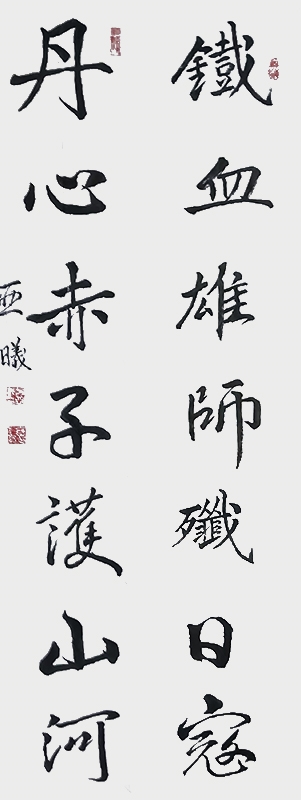 鐵血雄師殲日寇
丹心赤子護山河
亜曦